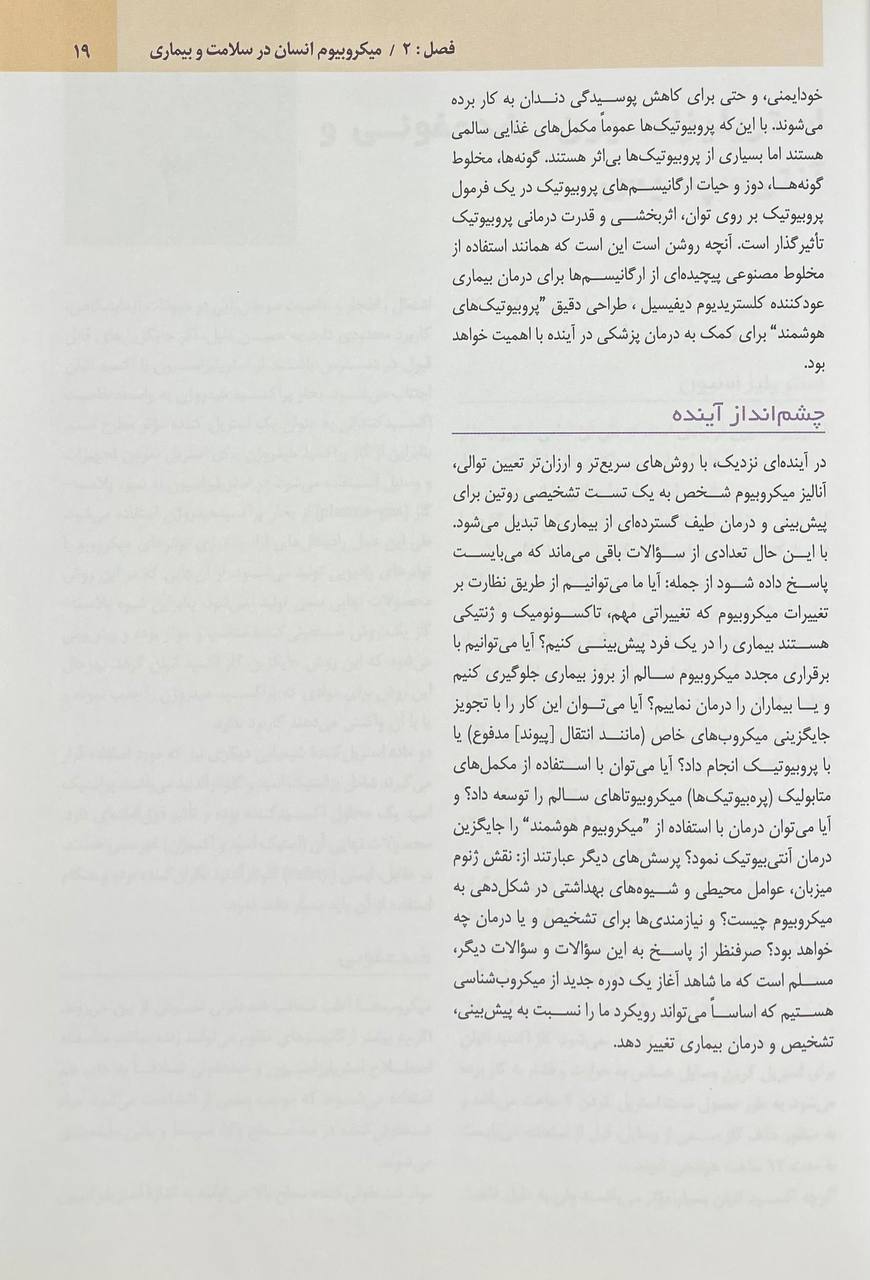 فصل: ۲ / میکروبیوم انسان در سلامت و بیماری ۱۹
خودایمنی، و حتی برای کاهش پوسیدگی دندان به کار برده
می‌شوند. با این‌که پروبیوتیک‌ها عموماً مکمل‌های غذایی سالمی
هستند اما بسیاری از پروبیوتیک‌ها بی‌اثر هستند. گونه‌ها، مخلوط
گونه‌ها، دوز و حیات ارگانیسم‌های پروبیوتیک در یک فرمول
پروبیوتیک بر روی توان، اثربخشی و قدرت درمانی پروبیوتیک
تأثیرگذار است. آنچه روشن است این است که همانند استفاده از
مخلوط مصنوعی پیچیده‌ای از ارگانیسم‌ها برای درمان بیماری
عودکننده کلستریدیوم دیفیسیل ، طراحی دقیق "پروبیوتیک‌های
هوشمند" برای کمک به درمان پزشکی در آینده با اهمیت خواهد
بود.
چشم‌انداز آینده
در آینده‌ای نزدیک، با روش‌های سریع‌تر و ارزان‌تر تعیین توالی،
آنالیز میکروبیوم شخص به یک تست تشخیصی روتین برای
پیش‌بینی و درمان طیف گسترده‌ای از بیماری‌ها تبدیل می‌شود.
با این حال تعدادی از سؤالات باقی می‌ماند که می‌بایست
پاسخ داده شود از جمله: آیا ما می‌توانیم از طریق نظارت بر
تغییرات میکروبیوم که تغییراتی مهم، تاکسونومیک و ژنتیکی
هستند بیماری را در یک فرد پیش‌بینی کنیم؟ آیا می‌توانیم با
برقراری مجدد میکروبیوم سالم از بروز بیماری جلوگیری کنیم
و یا بیماران را درمان نماییم؟ آیا می‌توان این کار را با تجویز
جایگزینی میکروب‌های خاص (مانند انتقال [پیوند] مدفوع) یا
با پروبیوتیک انجام داد؟ آیا می‌توان با استفاده از مکمل‌های
متابولیک (پره‌بیوتیک‌ها) میکروبیوتاهای سالم را توسعه داد؟ و
آیا می‌توان درمان با استفاده از "میکروبیوم هوشمند" را جایگزین
درمان آنتی‌بیوتیک نمود؟ پرسش‌های دیگر عبارتند از: نقش ژنوم
میزبان، عوامل محیطی و شیوه‌های بهداشتی در شکل‌دهی به
میکروبیوم چیست؟ و نیازمندی‌ها برای تشخیص و یا درمان چه
خواهد بود؟ صرفنظر از پاسخ به این سؤالات و سؤالات دیگر،
مسلم است که ما شاهد آغاز یک دوره جدید از میکروب‌شناسی
هستیم که اساساً می‌تواند رویکرد ما را نسبت به پیش‌بینی،
تشخیص و درمان بیماری تغییر دهد.